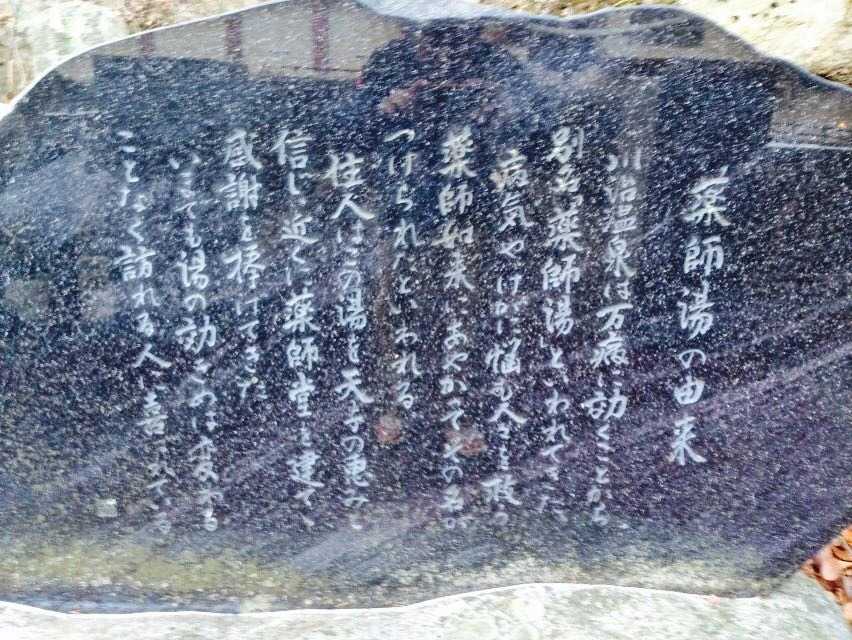 薬師湯の由来
川治温泉は万病に効くことから、
別名「薬師湯」といわれてきた。
病気やけがに悩む人々を救う
薬師如来にあやかってその名が
つけられたといわれる
住人はこの湯を天与の恵みと
信じ近くに薬師堂を建て、
感謝を捧げてきた
いまでも湯の効めは変わる
ことなく訪れる人に喜ばれている